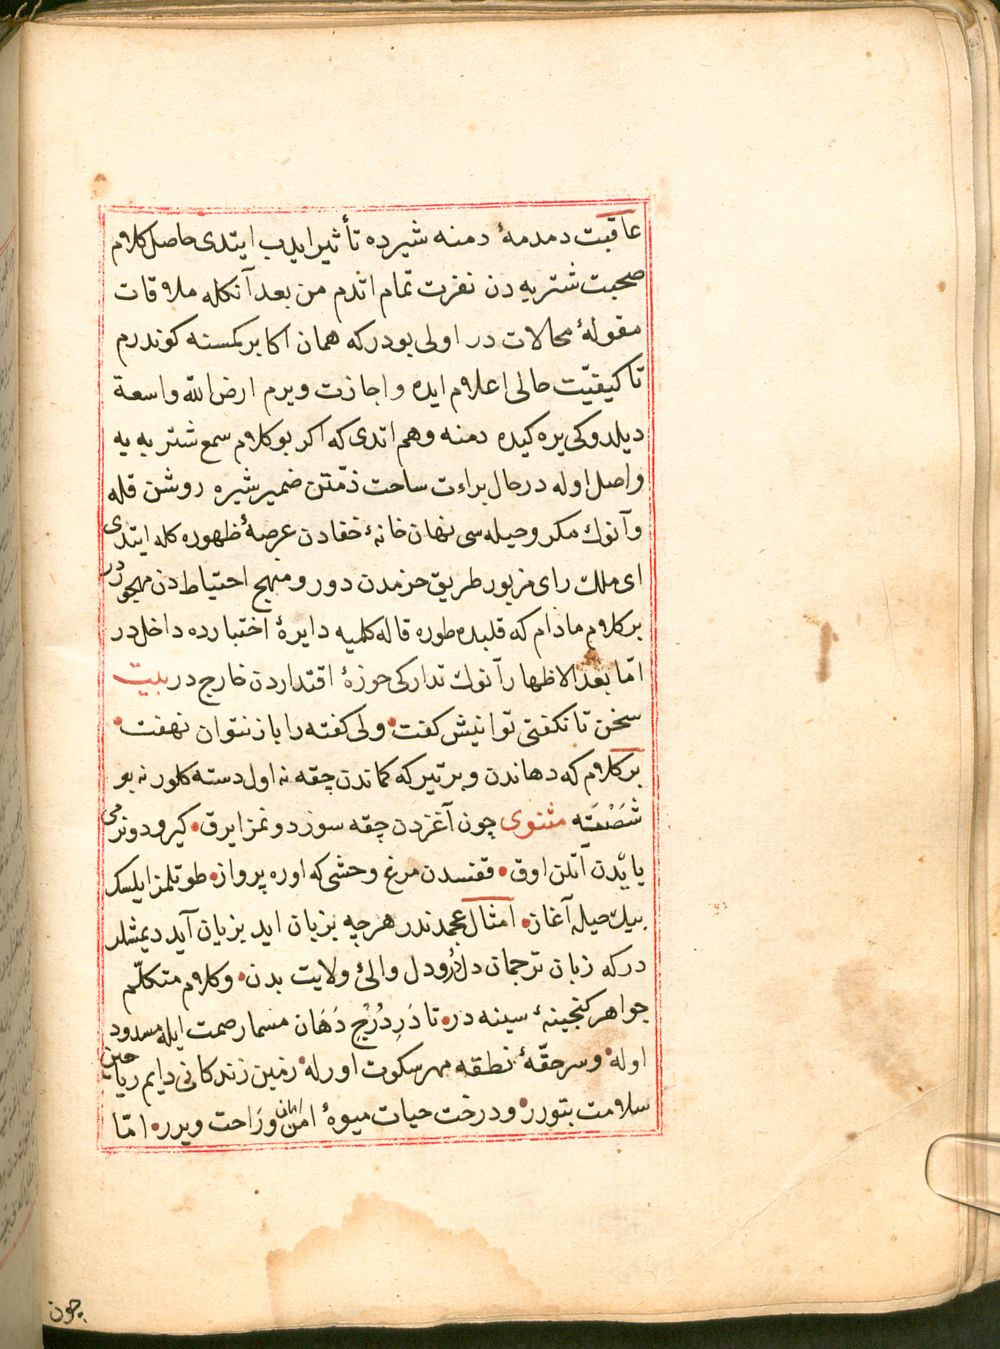 عاقبت دمدمهٔ دمنه شیرده تأثیر ایدب ایتدی حاصل کلام
صحبت شتربه دن نفرت تمام اتدم من بعد آنکله ملاقات
مقولهٔ محالات در اولی بودرکه همان اکا بر کمسنه کوندرم
تا کیفیّت حالی اعلام ایده واجازت ویرم ارض الله واسعة
دیلدوکی یره کیده دمنه وهم اتدی که اکر بو کلام سمع شتربه یه
واصل اوله درحال براءت ساحت ذمّتن ضمیر شیره روشن قله
وآنوك مکر وحیله سی نهان خانهٔ خفادن عرصهٔ ظهوره کله ایتدی
ای ملك رای مزبور طریق حزمدن دور ومنهج احتیاط دن مهجوردر
بر کلام مادام که قلبده طوره قاله کلمیه دایرهٔ اختیارده داخل در
امّا بعد الاظهار آنوك تدارکی حوزهٔ اقتداردن خارج در بیت
سخن تا نکفتی توانیش کفت ولی کفته را باز نتوان نهفت
بر کلام که دهاندن وبر تیر که کماندن چقه نه اول دسته کلور نه بو
شَصْصَته مثنوی چون آغزدن چقه سوز دونمز ایرق کیرو دونرمی
یایّدن آتلن اوق قفسدن مرغ وحشی که اوره پرواز طوتلمز ایلسك
بیك حیله آغاز امثال عجمدندر هرچه بزبان اید بزیان آید دیمشلر
درکه زبان ترجمان دل درو دل والئ ولایت بدن وکلام متکلّم
جواهر کنجینهٔ سینه در تا دَرِ دُرْج دَهَان مسمار صمت ایله مسدود
اوله وسر حقّهٔ نطقه مهر سکوت اورله زمین زندکانی دایم ریاحین
سلامت بتورر ودرخت حیات میوهٔ امن امان وراحت ویرر امّا
چون